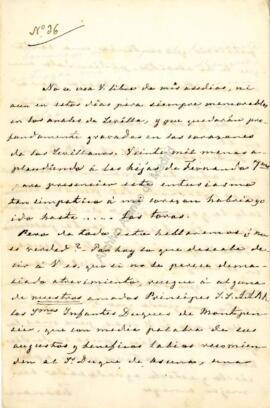 Nº 36
No se crea V. libre de mis asedios, ni
aun en estos dias para siempre memorables
en los anales de Sevilla, y que quedarán pro-
fundamente gravados en los corazones
de los Sevillanos. Veinte mil manos a-
plaudiendo á las hijas de Fernando 7mo
para presenciar este entusiasmo
tan simpatico á mi corazon habria yo
ido hasta ..... los toros.
Pero de todo esto hablaremos ¿no
es verdad? Por hoy lo que deseaba de-
cir á V. es, que si no le parece dema-
siado atrevimiento, ruegue á alguno
de nuestros amados Principes S.S. A.A. R.R.
los ymos Infantes Duques de Montpen-
sier, que con media palabra de sus
augustos y beneficos labios recomien-
den al Sr. Duque de Osuna, una